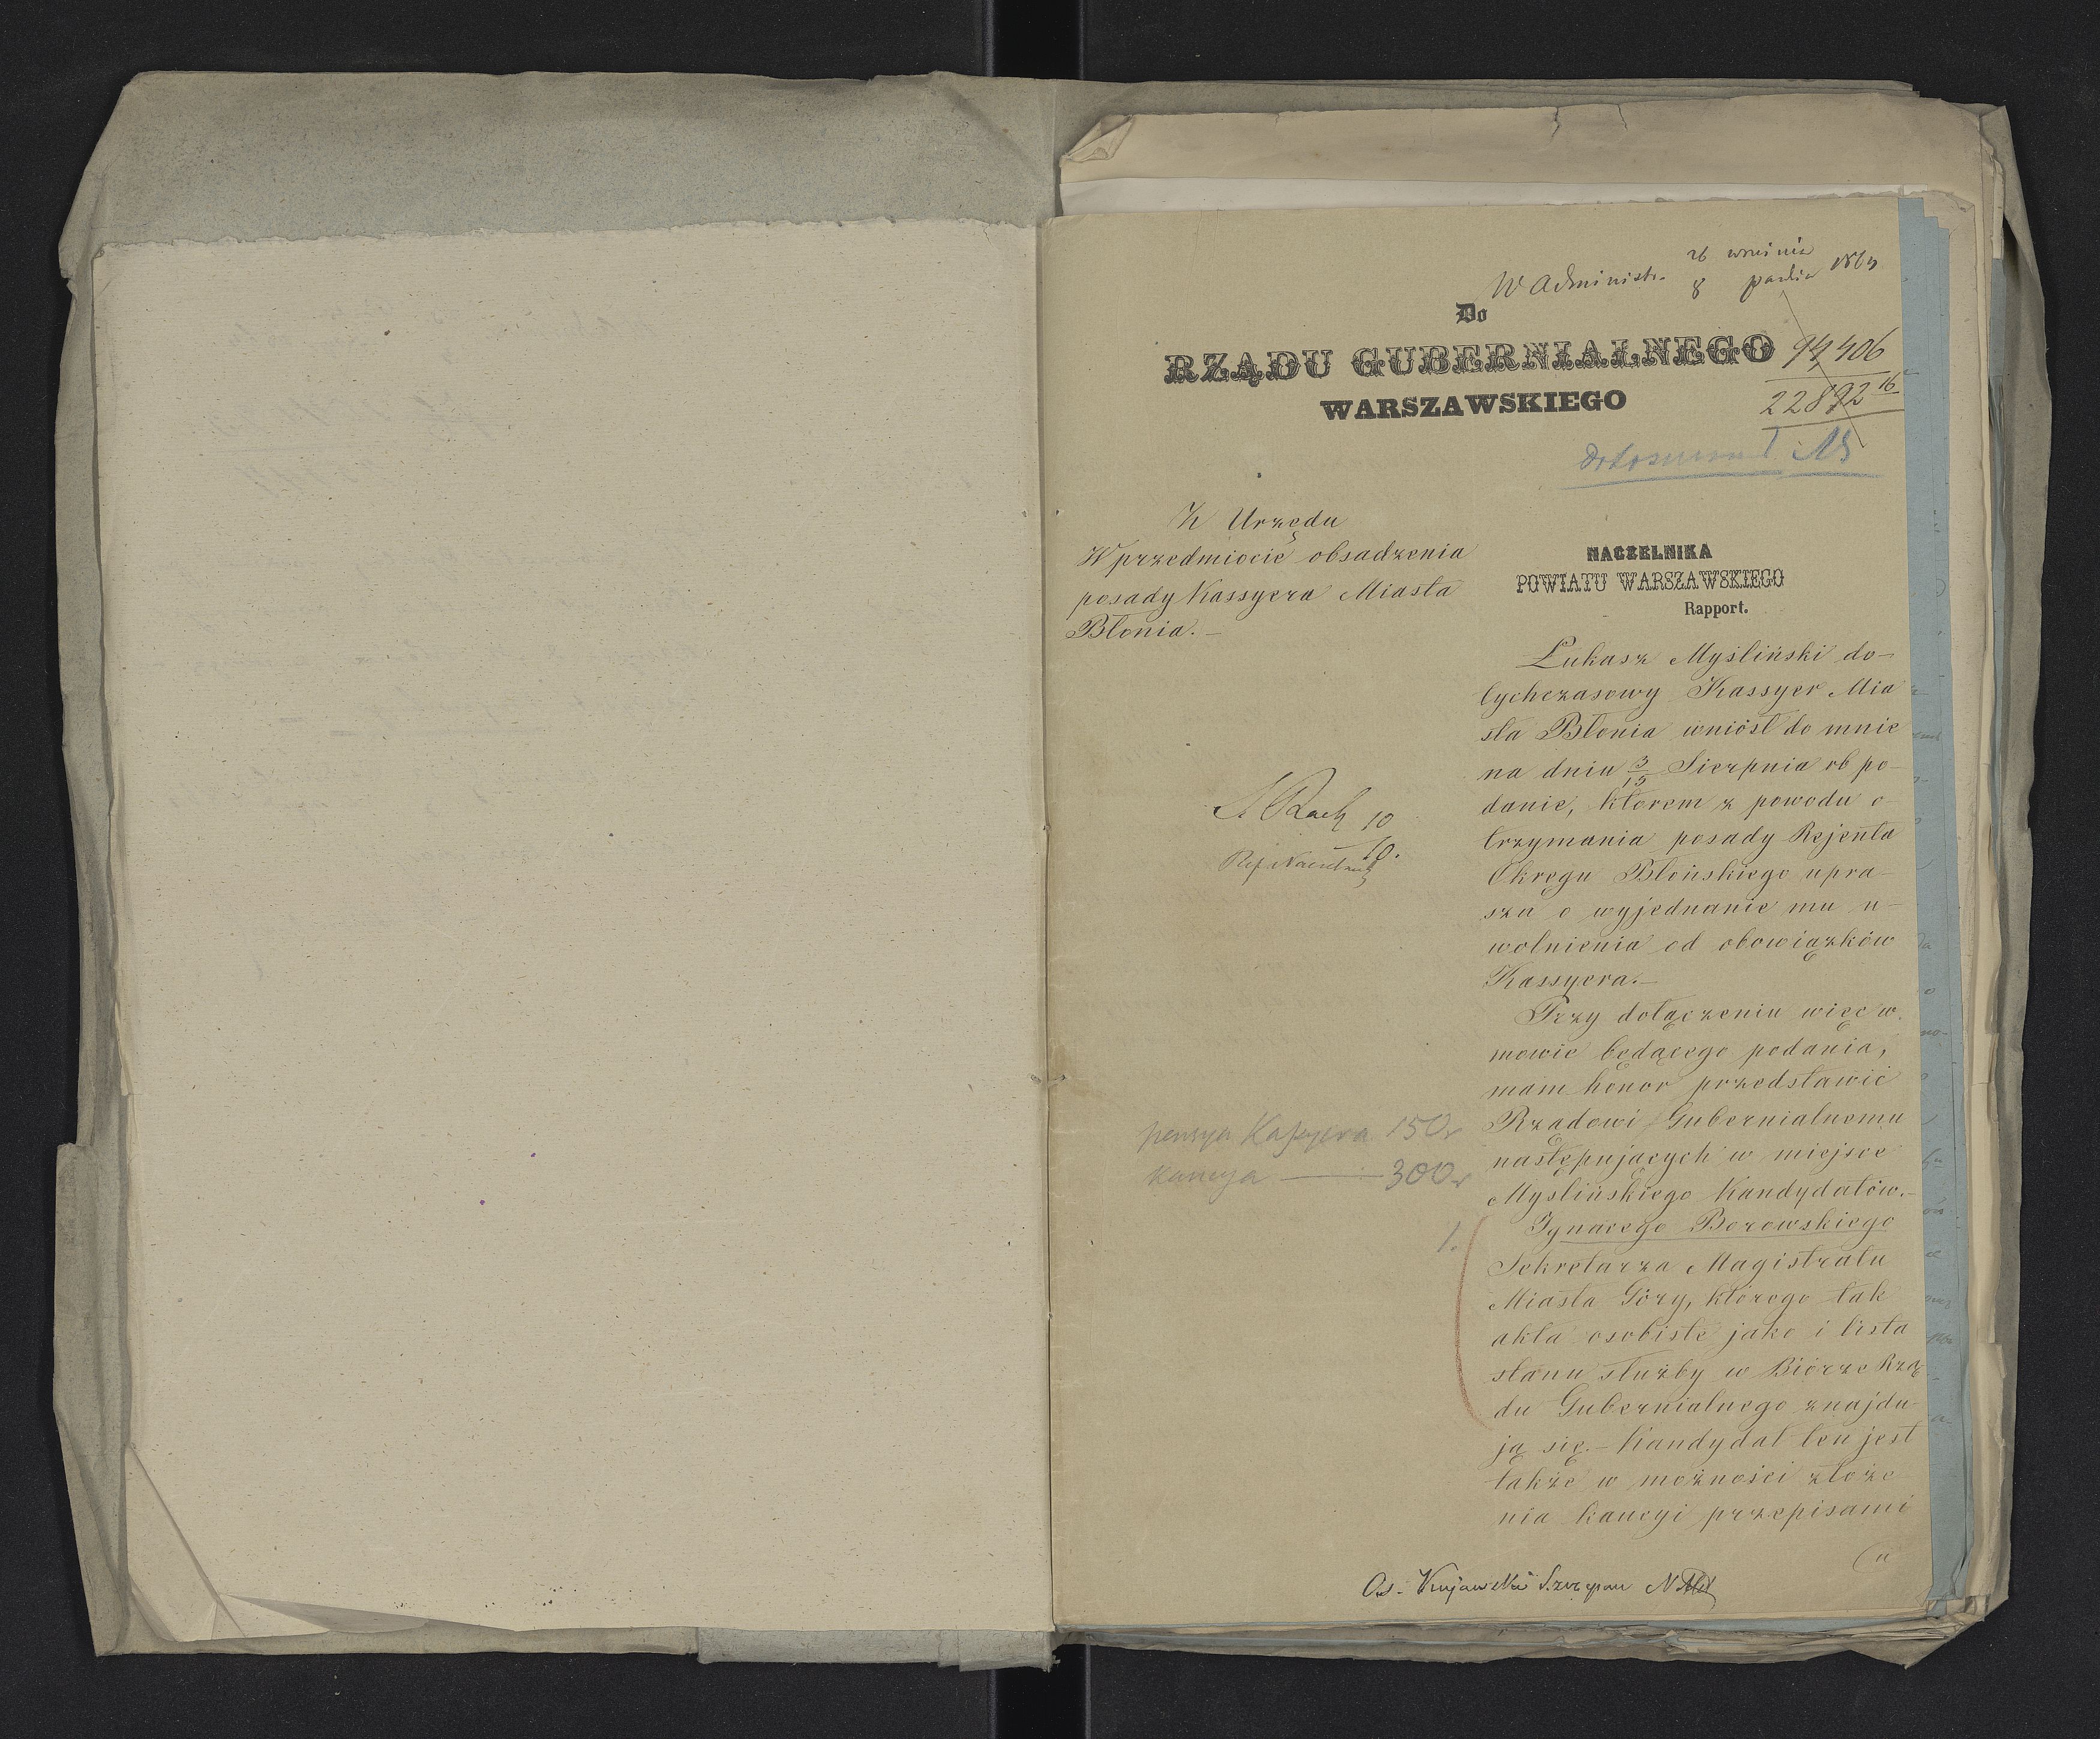 W Administr. 26 września
8 paźdz 1865
Do
RZĄDU GUBERNIALNEGO
WARSZAWSKIEGO
94,406
22892 16
Z Urzędu
W przedmiocie obsadzenia
posady Kassyera Miasta
Błonia. –
NACZELNIKA
POWIATU WARSZAWSKIEGO
Rapport.
Łukasz Myśliński do-
tychczasowy Kassyer Mia
sta Błonia wniósł do mnie
na dniu 3/15 Sierpnia rb po-
danie, którem z powodu o-
trzymania posady Rejenta
Okręgu Błońskiego upra-
sza o wyjednanie mu u-
wolnienia od obowiązków
Kassyera. –
Przy dołączeniu więc w
mowie będącego podania,
mam honor przedstawić
Rządowi Gubernialnemu
następujących w miejsce
Myślińskiego Kandydatów. –
Ignacego Borowskiego
Sekretarza Magistratu
Miasta Góry, którego tak
akta osobiste jako i lista
stanu służby w Biórze Rzą
du Gubernialnego znajdu-
ją się. – Kandydat ten jest
także w możności złoże
nia kaucyi przepisami
10
10.
pensya Kassyera 150 r
kaucya — 300 r
1.
Os. Kujawski Szczepan